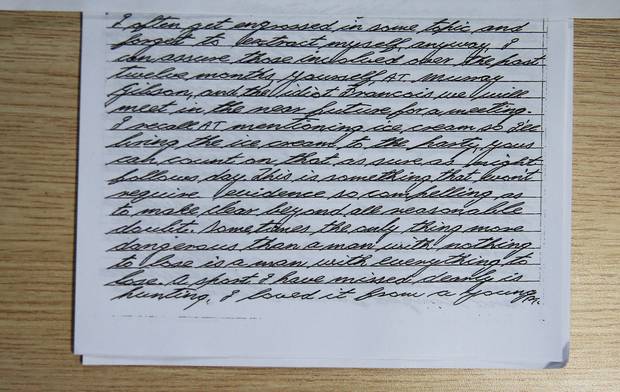 I often get engrossed in some topic and
forget to extract myself, anyway, I
can assure those involved over the past
twelve months, yourself AT Murray
Gibson, and the idiot Francois, we will
meet in the near future for a meeting.
I recall AT mentioning ice cream so I'll
bring the ice cream to the party, you
can count on that, as sure as night
follows day this is something that won't
require evidence so compelling as
to make clear beyond all reasonable
doubt. Sometimes the only thing more
dangerous than a man with nothing
to lose is a man with everything to
lose. A sport I have missed dearly is
hunting, I loved it from a young